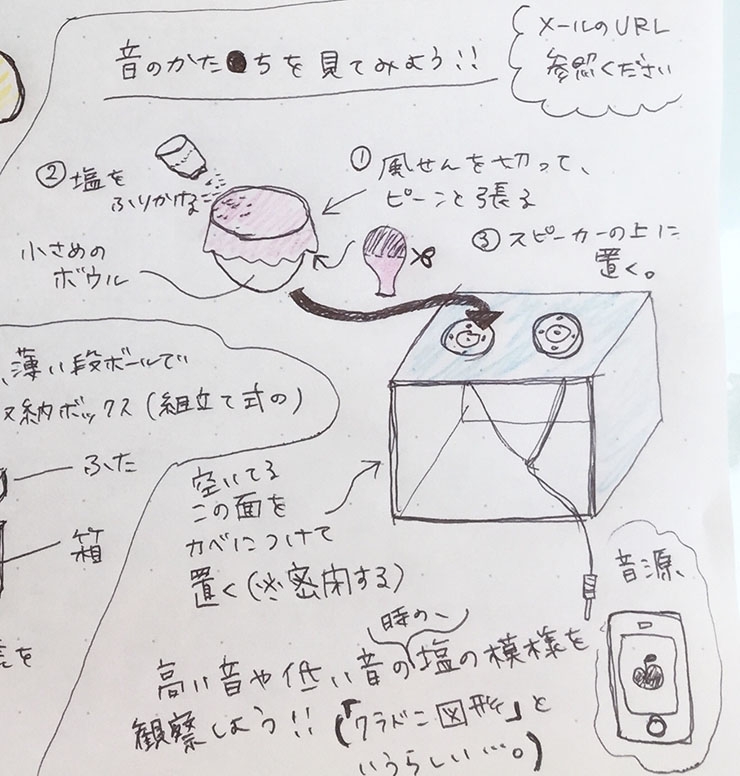 音のかたちを見てみよう!!
メールのURL
参照ください
①風せんを切って、
ピーンと張る
②塩を
ふりかける
小さめの
ボウル
③スピーカーの上に
置く。
薄い段ボールで
収納ボックス(組立て式の)
ふた
箱
空いてる
この面を
カベにつけて
置く(※密閉する)
音源
時の、
高い音や低い音の塩の模様を
観察しよう!!(「クラドニ図形」と
いうらしい…。)